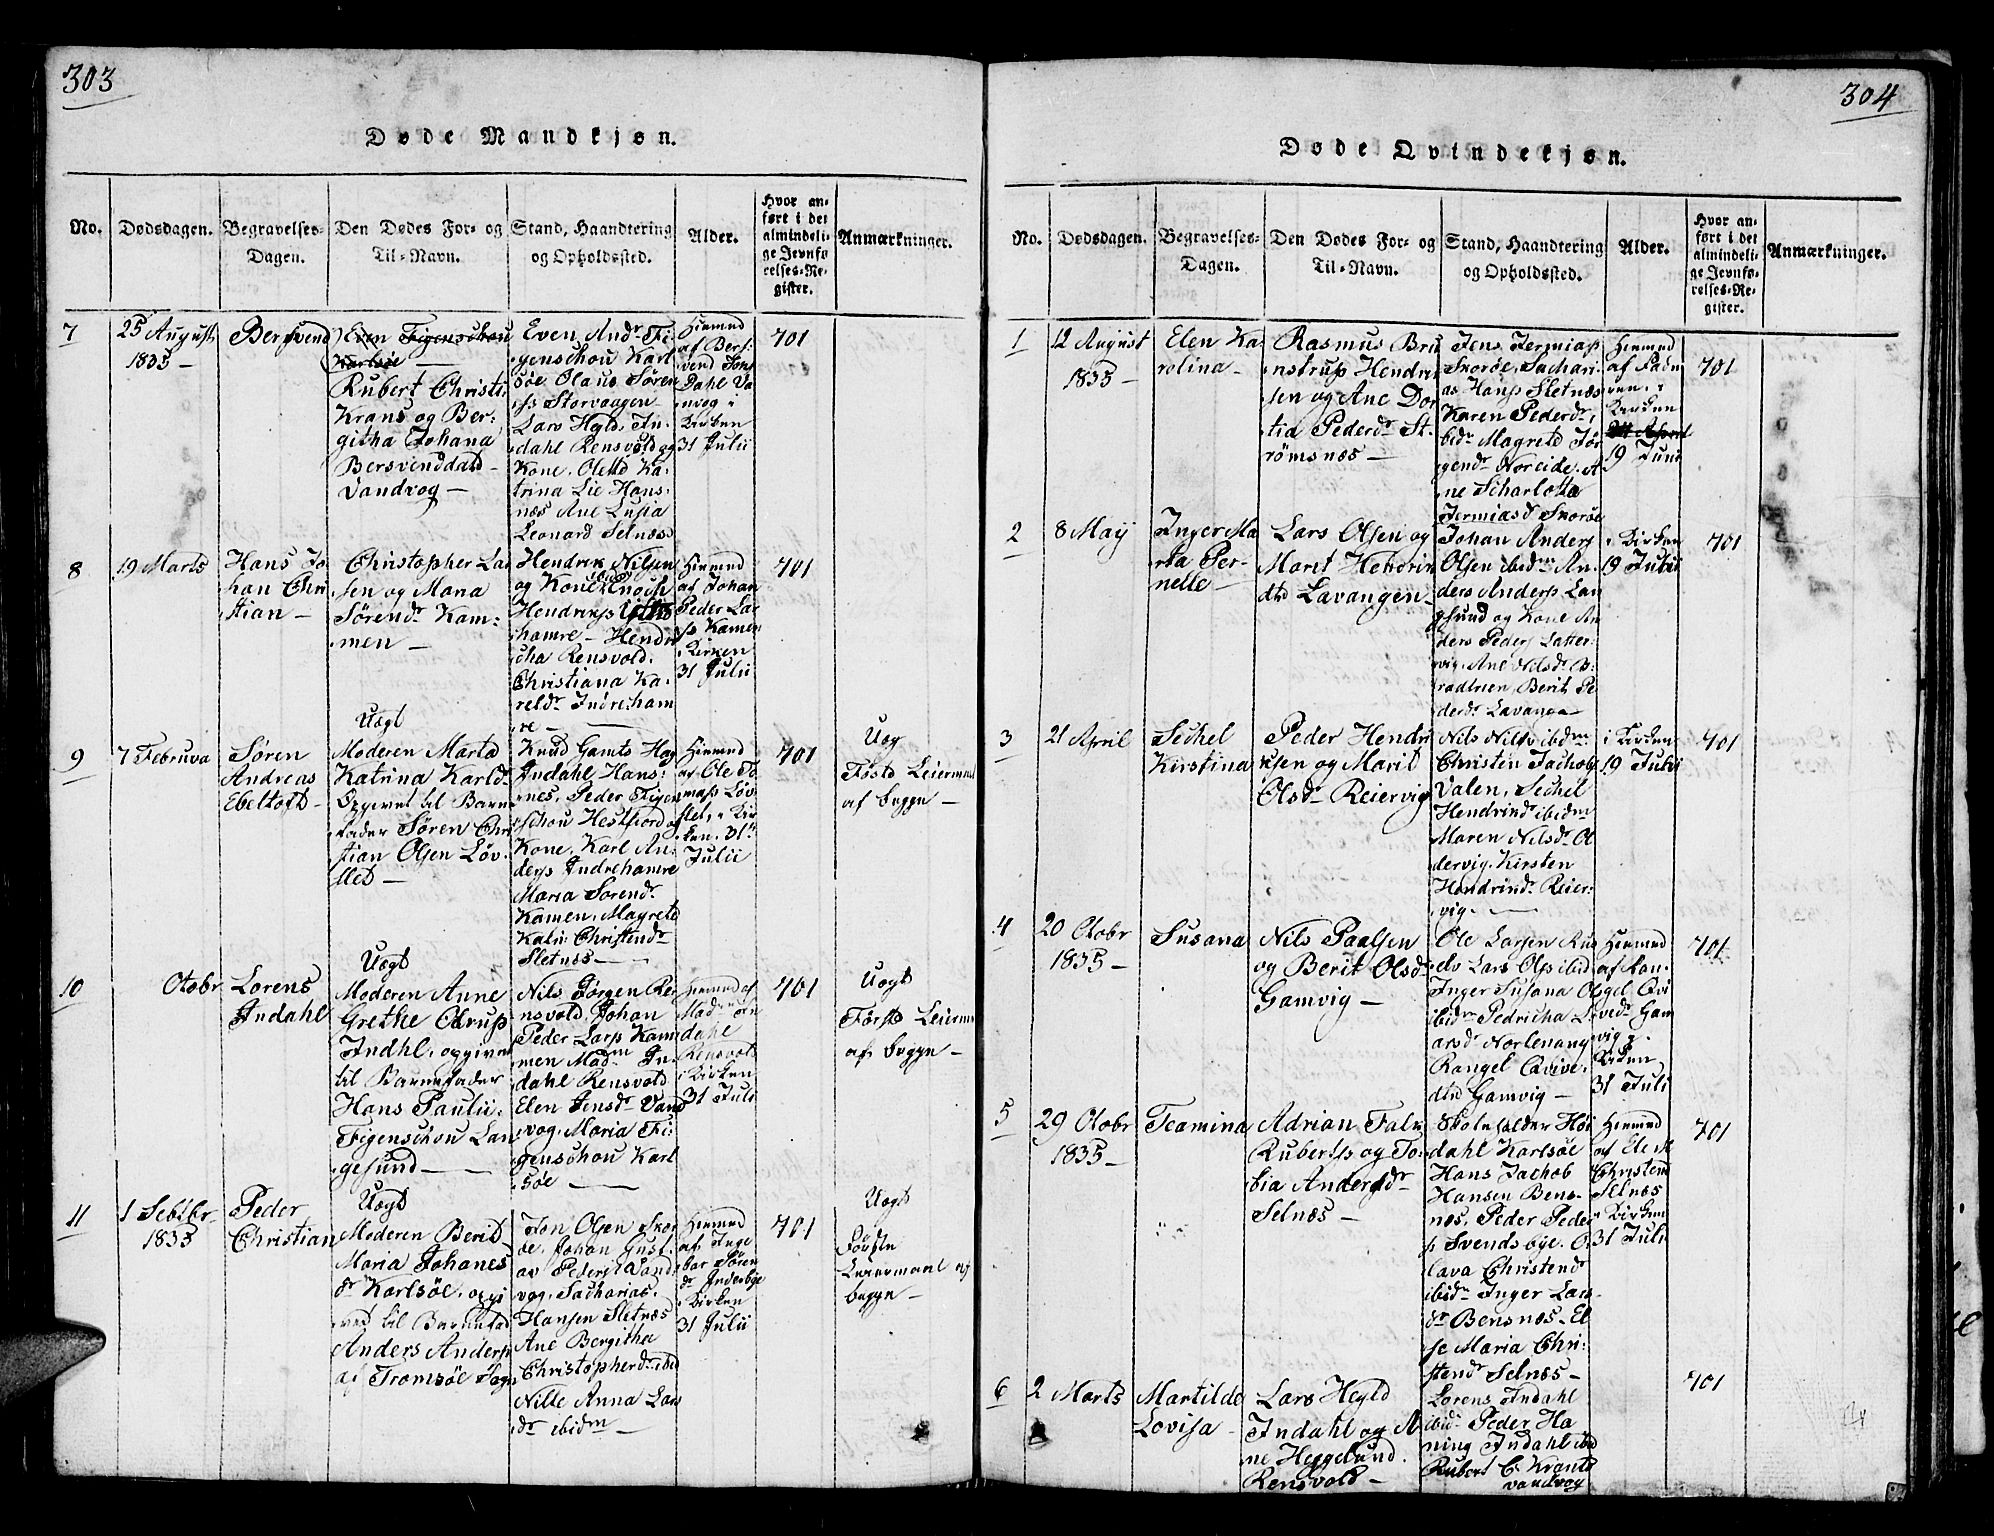 303
Døde Mandkjøn.
No.
Dødsdagen.
Begravelses-
Dagen.
Den Dødes For- og
Til-Navn.
Stand, Haandtering
og Opholdssted.
Alder.
Hvor an-
ført i det
almindeli-
ge Jevnfø-
relses-Re-
gister.
Anmærkninger.
7
25 August
1835 -
Bersvend
Even Figenschou
Karlsöe
Rubert Christ:
Krans og Ber:
githa Johana
Bersvenddatd
Vandvog -
Even Andr Fi
genschou Karl
söe Olaus Sören
ss Storvaagen -
Lars Hgld. In:
dahl Rensvold og
Kone. Oletta Ka:
trina Lie Hans:
næs Ane Lusia
Leonard Selnæs
Hiemed
af Bers
vend Jons
Dahl Va
nvog i
Kirken
31 Julii
701
8
19 Marts
Hans Jo
han Chri
stian -
Christopher Lar
sen og Mana
Sörendr Kam:
men -
Hendrik Nilsen
og Kone Enoch
Hendriks
hamre - Hendri
cha Rensvold.
Christiana Ka:
reldr Indreham
re -
Hiemed
af Johan
Peder Lar
ss Kamen
i Kirken
31 Julii
701
9
7 Februva
Sören
Andreas
Ebeltoft -
Uægt
Moderen Marta
Katrina Karldr
Opgivet til Barn
fader Sören Chri
stian Olsen Löv
slet -
Knud Gamts Hag
Indahl Hans:
nes, Peder Figen
schou Hestfiord og
Kone, Karl An
ders Indrehamre
Maria Sorendr
Kamen, Magrete
Katr: Christendr
Sletnæs -
Hiemed
af Ole To
mass Löv
slet, i Kir
ken. 31te
Julii
701
Uæg
Föste Leiermaal
af begge -
10
Otobr
Lorens
Indahl
Uægt
Moderen Anne
Grethe Ostrup
Indhl. opgivet
til Barnefader
Hans Paulii:
Figenschou Lan
gesund -
Nils Jörgen Re
nsvold, Johan
Peder Lars Kam
men Madm In:
dahl Rensvold
Elen Jensdr Vand
vog, Maria Fi:
genschou Karl
söe -
Hiemed af
Madm In
dahl
Rensvold
i Kirken
31 Juli
701
Uægt
Förste Leierma
af begge -
11
1 Sebtbr
1835
Peder
Christian
Uægt
Moderen Berit
Maria Johanes
dr Karlsöe, opgi
vet til Barnefad
Anders Anders
af Tromsöe Sogn
Jon Olsen Skor
öe. Johan Gust.
av Peders Vand
vog, Sacharias.
Hansen Sletnæs
Ane Bergitha
Christopherdr ibid
Nille Anna Lars
dr ibidm -
Hiemed
af Inge
bor Sören
dr Inderbye
i Kirken
31 Julii
701
Uægt
Förste
Leiermaal af
begge -
304
Døde Qvindekjøn.
No.
Dødsdagen.
Begravelses-
Dagen.
Den Dødes For- og
Til-Navn.
Stand, Haandtering
og Opholdssted.
Alder.
Hvor an-
ført i det
almindeli-
ge Jevnfø-
relses-Re-
gister.
Anmærkninger.
1
12 August
1835 -
Elen Ka
rolina -
Rasmus Bru
nstrup Hendri
sen og Ane Dor
tia Pederdr St.
römsnæs -
Jens Jermias
Skoröe, Sachari
as Hanss Sletnæs
Karen Pederdr
ibidr Magrete Jör
gendr Noreide, A
ne Scharlotta
Jermiasd Skoröe
Hiemed
af Fadn
ven. i
Kirken
24 April
19 Juni
701
2
8 Maij
Inger Ma
rta Per
nelle -
Lars Olsen og
Marit Hendrin
dtd Lavangen -
Johan Anders
Olsen ibidm An
ders Anders Lan
gsund og Kone An
ders Peders Latter:
vig. Ane Nilsdr B:
radtrien, Berit Pe
derdr Lavange
i Kirken
19 Julii
701
3
21 April
Sechel
Kirstina
Peder Hendri
ksen og Marit
Olsdr Reiervig
Nils Nilss ibidm
Christen Jachobs
Valen, Sechel
Hendrind ibidm
Maren Nilsdr Ol
dervig. Kirsten
Hendrindr Reier:
vig. -
i Kirken
19 Julii
701
4
20 Otobr
1835 -
Susana
Nils Paalsen
og Berit Olsd.
Gamvig -
Ole Larsen Rus
elv Lars Olss ibid
Inger Susana Ol
ibidm Pedricha L
arsdr Norlenang
Rangel Qvive:
dtd Gamvig -
Hiemed
af Ran
gel Qvi
vedr Gam
vig i
Kirken
31 Juli
701
5
29 Otobr
1835 -
Teamina
Adrian Falk
Rubertss og To:
bia Andersdr
Selnæs -
Skoleholder Höi
dahl Karlsöe
Hans Jachob
Hansen Bens-
næs, Peder Peder
s Svendsbye. O.
lava Christend
ibidr Inger Lars
dr Bensnæs - El
se Maria Chri:
stendr Selnæs -
Hiemed
af Else M
Christend
Selnæs
i Kirken
31 Juli
701
6
2 Marts
Martilde
Lovisa -
Lars Hegld
Indahl og A
ne Heggelund
Rensvold -
Lorens Indahl
ibidr Peder Ha
ning Indahl ibid
Rubert C. Krants
vandvog
701